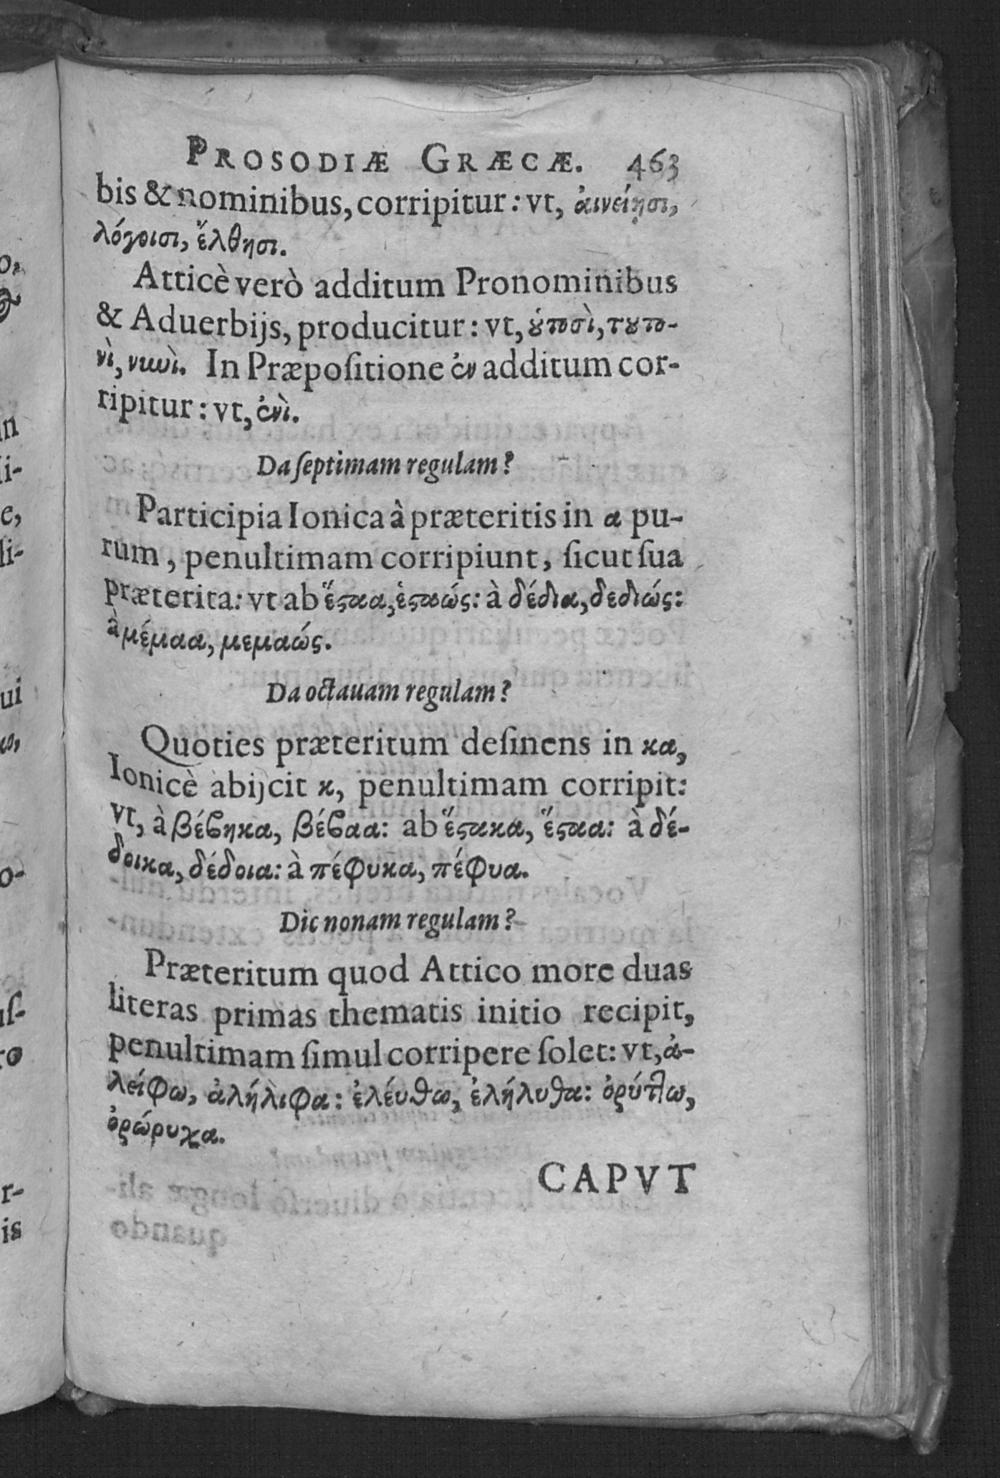 PROSODIÆ GRÆCÆ. 463
bis & nominibus, corripitur: vt, αἰνείησι,
λόγοισι, ἔλθησι.
Atticè verò additum Pronominibus
& Aduerbijs, producitur: vt, οὑτοσὶ, τουτο-
νὶ, νυνὶ. In Præpositione ἐν additum cor-
ripitur: vt, ἐνὶ.
Da septimam regulam?
Participia Ionica à præteritis in α pu-
rum, penultimam corripiunt, sicut sua
præterita: vt ab ἕσταα, ἑσταώς: à δέδια, δεδιώς:
à μέμαα, μεμαώς.
Da octauam regulam?
Quoties præteritum desinens in κα,
Ionicè abijcit κ, penultimam corripit:
vt, à βέβηκα, βέβαα: ab ἕστακα, ἕσταα: à δέ-
δοικα, δέδοια: à πέφυκα, πέφυα.
Dic nonam regulam?
Præteritum quod Attico more duas
literas primas thematis initio recipit,
penultimam simul corripere solet: vt, ἀ-
λείφω, ἀλήλιφα: ἐλέυθω, ἐλήλυθα: ὀρύττω,
ὀρώρυχα.
CAPVT